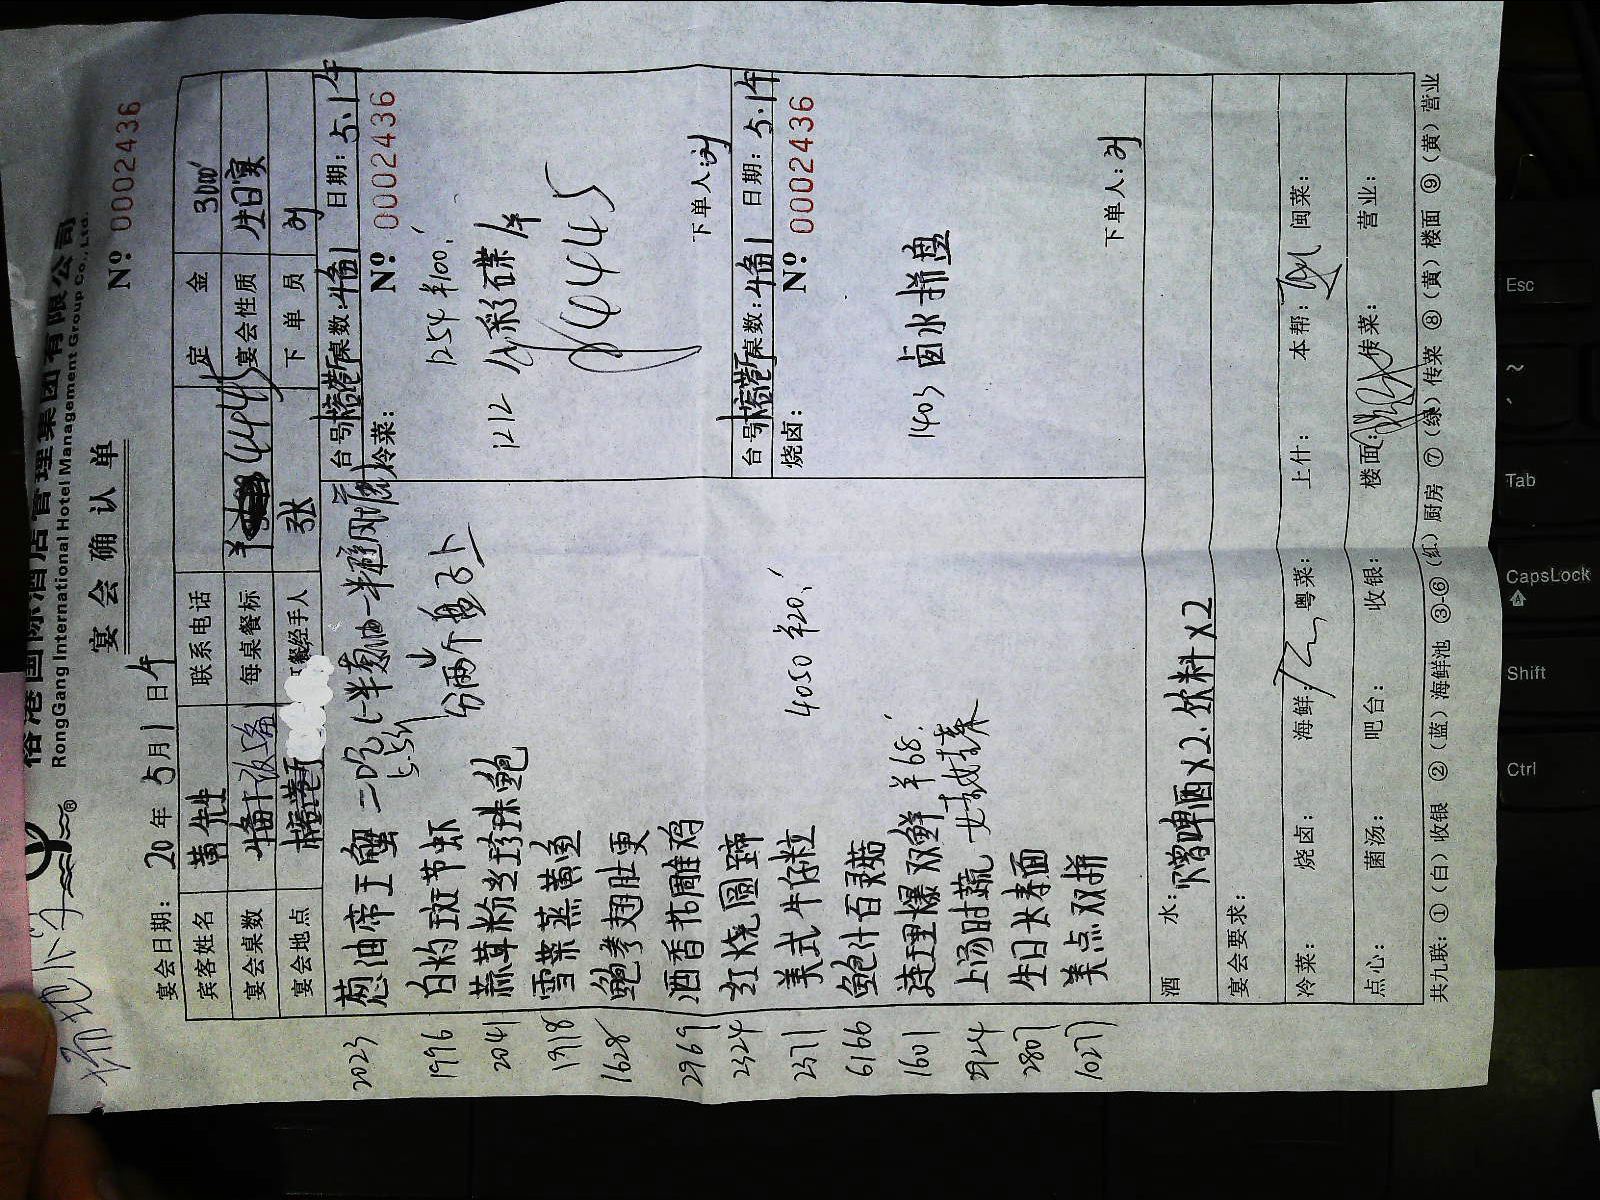 榕港国际酒店管理集团有限公司
RongGang International Hotel Management Group Co., Ltd.
®
宴会确认单
Nº 0002436
宴会日期: 20 年 5月1日午
宾客姓名 黄先生 联系电话 定金 3000
宴会桌数 每桌餐标 4445 宴会性质 生日宴
宴会地点 榕港 经手人 张 下单员 刘
2023 葱油帝王蟹 二吃(一半葱油一半避风塘)
1996 白灼斑节虾 5.5
分两个盘子上
2041 蒜茸粉丝珍珠鲍
1918 雪菜蒸黄鱼
1628 鲍参翅肚羹
2969 酒香花雕鸡
2324 红烧圆蹄
2371 美式牛仔粒 4050 ¥20
6166 鲍什百灵菇
1601 连理爆双鲜 ¥68
2924 上汤时蔬
2807 生日长寿面
10277 美点双拼
台号 榕港 桌数: 日期: 5.1午
冷菜: Nº 0002436
1254 ¥100
1212 八彩碟
4445
下单人: 刘
台号 榕港 桌数: 日期: 5.1午
烧卤: Nº 0002436
1403 卤水拼盘
下单人: 刘
酒水: 赠啤酒x2.饮料x2
宴会要求:
冷菜: 烧卤: 海鲜: 粤菜: 上什: 本帮: 闽菜:
点心: 菌汤: 吧台: 收银: 楼面: 传菜: 营业:
共九联: ①(白)收银 ②(蓝)海鲜池 ③-⑥(红)厨房 ⑦(绿)传菜 ⑧(黄)楼面 ⑨(黄)营业
Esc
~
Tab
CapsLock
Shift
Ctrl